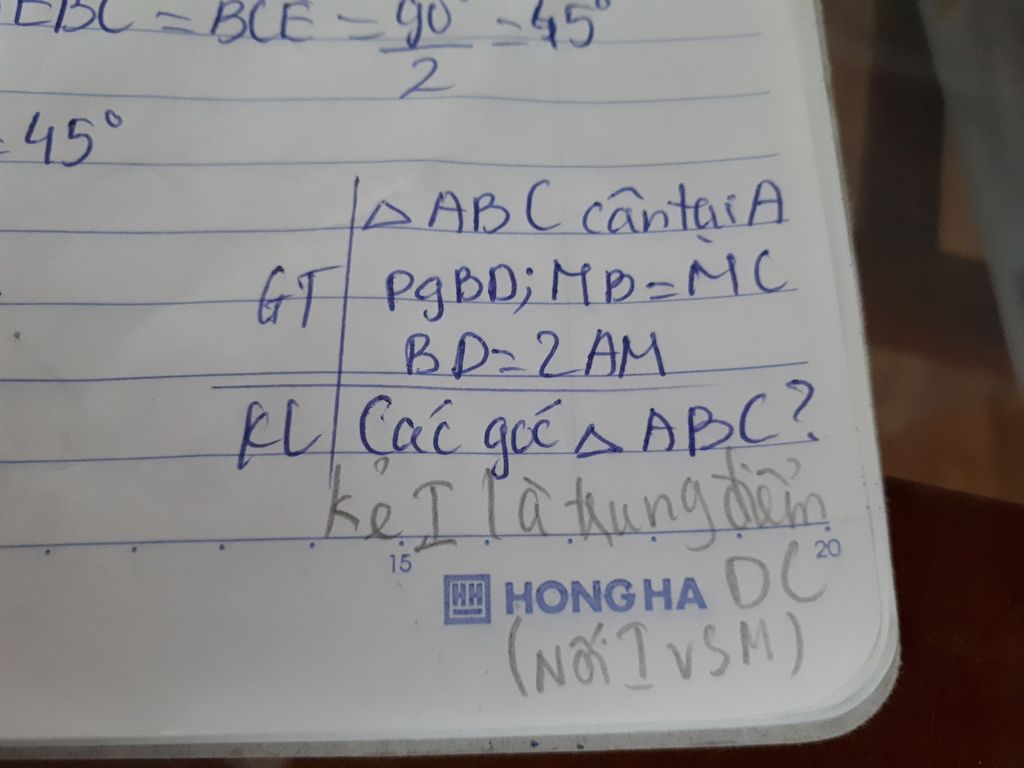 EBC = BCE = 90°/2 = 45°
= 45°
△ABC cân tại A
GT pgBD; MB = MC
BD = 2AM
KL Các góc △ABC?
Kẻ I là trung điểm
15 20
HH HONG HA DC
(Nối I vs M)